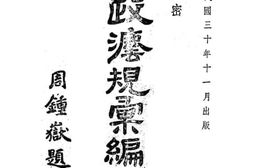 國三十年十一月出版
密
政法規彙編
周鍾嶽題